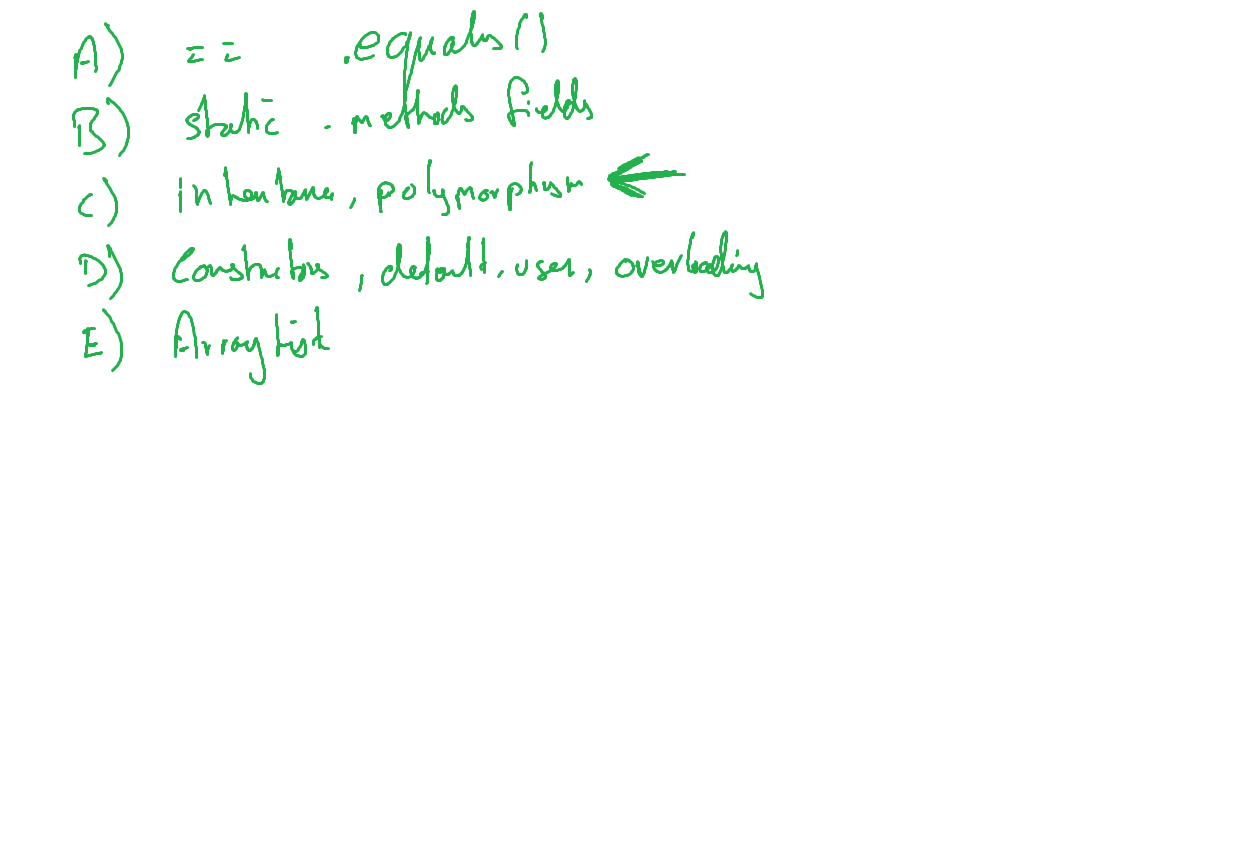 A) == .equals()
B) static - methods fields
C) inheritance, polymorphism
D) Constructors, default, user, overloading
E) ArrayList